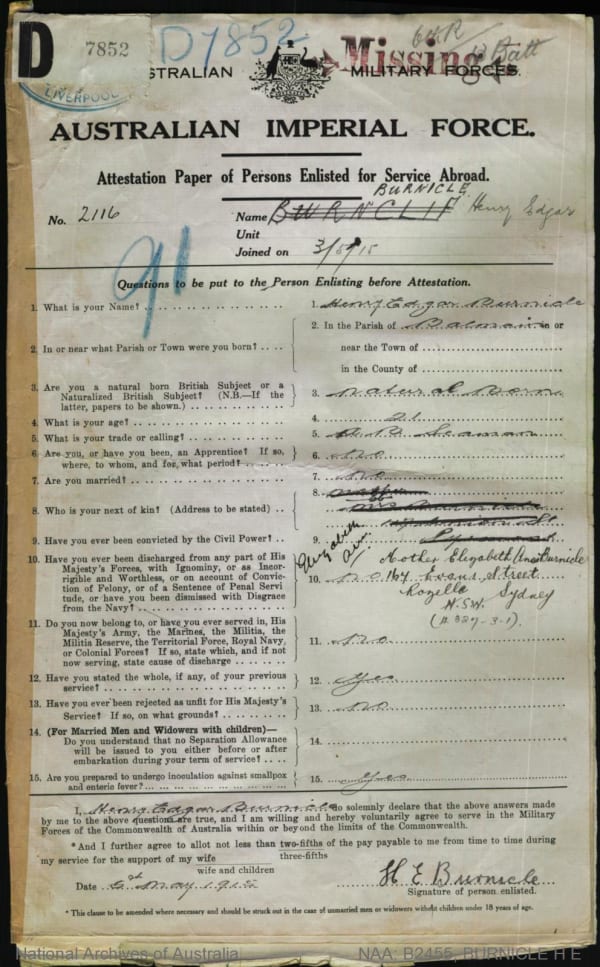 D 7852 D7852 Missing
64R 13 Batt
LIVERPOOL
STRALIAN MILITARY FORCES.
AUSTRALIAN IMPERIAL FORCE.
Attestation Paper of Persons Enlisted for Service Abroad.
BURNICLE
No. 2116 Name BURNCLIF Henry Edgar
Unit
Joined on 3/5/15
91
Questions to be put to the Person Enlisting before Attestation.
1. What is your Name? 1. Henry Edgar Burnicle
2. In or near what Parish or Town were you born? 2. In the Parish of Balmain in or
near the Town of
in the County of
3. Are you a natural born British Subject or a
Naturalized British Subject? (N.B.—If the
latter, papers to be shown.) 3. Natural Born
4. What is your age? 4. 21
5. What is your trade or calling? 5. A.B. Seaman
6. Are you, or have you been, an Apprentice? If so,
where, to whom, and for what period? 6. No
7. Are you married? 7. No
8. Who is your next of kin? (Address to be stated) 8.
Elizabeth
9. Have you ever been convicted by the Civil Power? 9.
Mother Elizabeth Ann Burnicle
10. Have you ever been discharged from any part of His
Majesty's Forces, with Ignominy, or as Incor-
rigible and Worthless, or on account of Convic-
tion of Felony, or of a Sentence of Penal Servi-
tude, or have you been dismissed with Disgrace
from the Navy? 10. No
164 Evans Street
Rozelle Sydney
N.S.W.
11. Do you now belong to, or have you ever served in, His
Majesty's Army, the Marines, the Militia, the
Militia Reserve, the Territorial Force, Royal Navy,
or Colonial Forces? If so, state which, and if not
now serving, state cause of discharge 11. No
12. Have you stated the whole, if any, of your previous
service? 12. Yes
13. Have you ever been rejected as unfit for His Majesty's
Service? If so, on what grounds? 13. No
14. (For Married Men and Widowers with children)—
Do you understand that no Separation Allowance
will be issued to you either before or after
embarkation during your term of service? 14.
15. Are you prepared to undergo inoculation against smallpox
and enteric fever? 15. Yes
I, Henry Edgar Burnicle do solemnly declare that the above answers made
by me to the above questions are true, and I am willing and hereby voluntarily agree to serve in the Military
Forces of the Commonwealth of Australia within or beyond the limits of the Commonwealth.
* And I further agree to allot not less than two-fifths of the pay payable to me from time to time during
three-fifths
my service for the support of my wife
wife and children
Date 6th May 1915 H E Burnicle
Signature of person enlisted.
* This clause to be amended where necessary and should be struck out in the case of unmarried men or widowers without children under 18 years of age.
National Archives of Australia NAA: B2455, BURNICLE H E